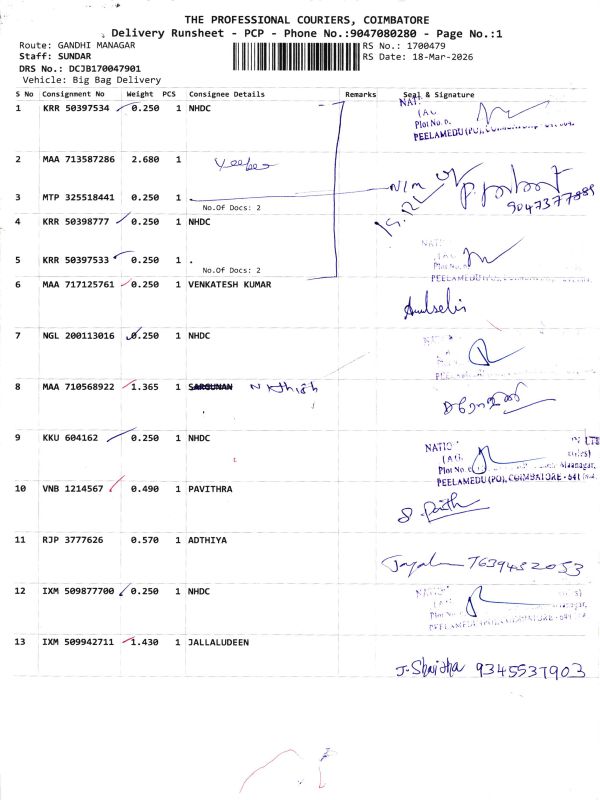 THE PROFESSIONAL COURIERS, COIMBATORE
Delivery Runsheet - PCP - Phone No.:9047080280 - Page No.:1
Route: GANDHI MANAGAR
RS No.: 1700479
Staff: SUNDAR
RS Date: 18-Mar-2026
DRS No.: DCJB170047901
Vehicle: Big Bag Delivery
S No Consignment No Weight PCS Consignee Details Remarks Seal & Signature
1 KRR 50397534 0.250 1 NHDC
PEELAMEDU (PO), COIMBATORE
2 MAA 713587286 2.680 1
3 MTP 325518441 0.250 1 . N/M
No.Of Docs: 2
9047377889
4 KRR 50398777 0.250 1 NHDC
5 KRR 50397533 0.250 1 .
No.Of Docs: 2
6 MAA 717125761 0.250 1 VENKATESH KUMAR
7 NGL 200113016 0.250 1 NHDC
8 MAA 710568922 1.365 1 SARGUNAN
9 KKU 604162 0.250 1 NHDC
PEELAMEDU (PO), COIMBATORE - 641
10 VNB 1214567 0.490 1 PAVITHRA
11 RJP 3777626 0.570 1 ADTHIYA
7639432053
12 IXM 509877700 0.250 1 NHDC
13 IXM 509942711 1.430 1 JALLALUDEEN
9345537903